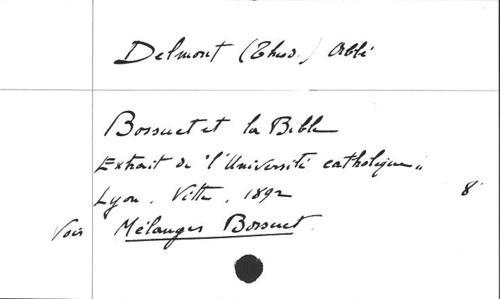 Delmont (Théod.) Abbé
Bossuet et la Bible
Extrait de "l'Université catholique"
Lyon. Vitte. 1892 8°
Voir Mélanges Bossuet.